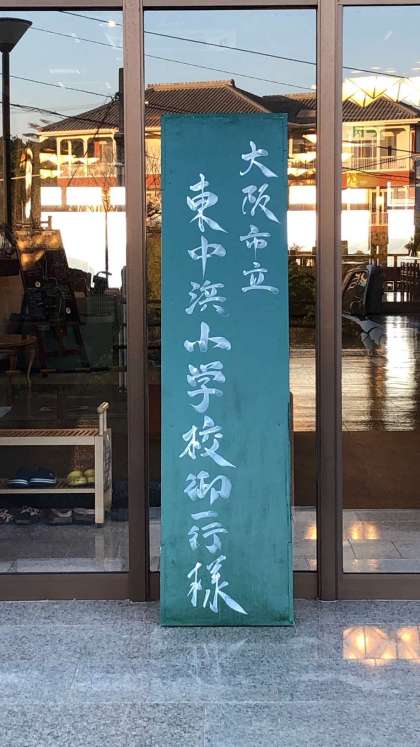 大阪市立
東中浜小学校御一行様